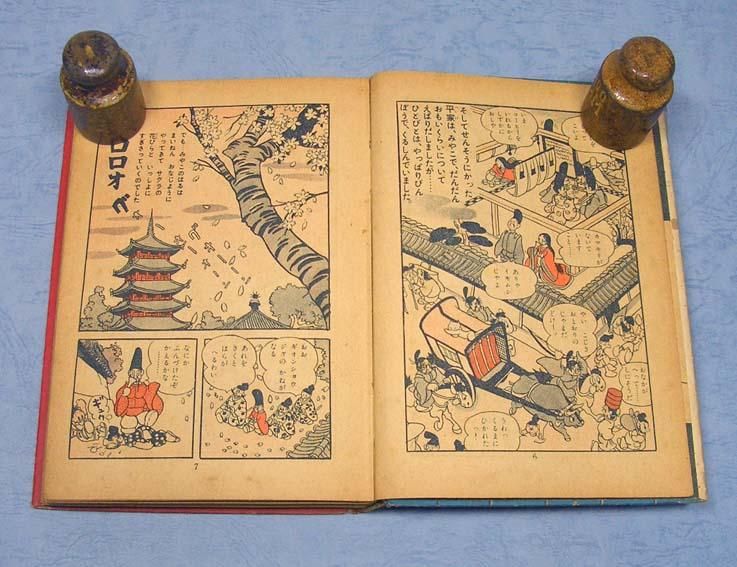 そしてせんそうにかった
平家は、みやこで、だんだん
おもいくらいについて
えばりだしましたが……
ひとびとは、やっぱりびん
ぼうで、くるしんでいました。
ないて
います
ありゃ
じゃよ
やい こじき
おとおりの
じゃまだ
どけーッ
おなかが
へって
しにそうだ
うわっ
くるまに
ひかれた
っ!
6
でも みやこのはるは
まいねん おなじように
やってきて サクラの
花びらと いっしょに
すぎさっていくのでした
ロロオ
おお
ギオンショウ
ジャの かねが
なる
あれを
きくと
はらが
へるわい
なにか
ふんづけたぞ
かえるかな
……
7